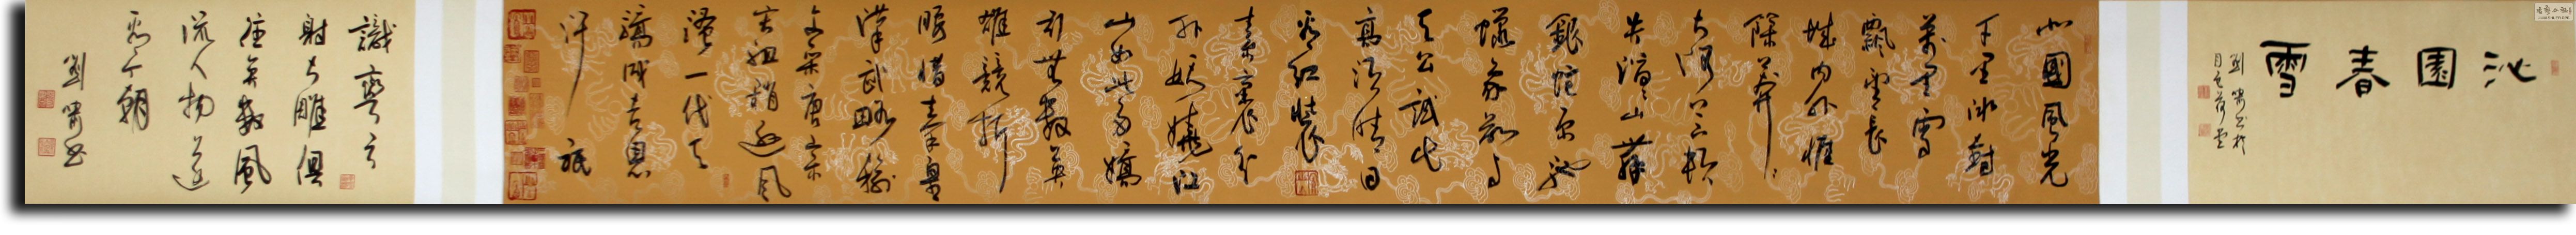 沁園春雪
北國風光
千里冰封
萬里雪
飄望長
城內外惟
餘莽〻
大河上下頓
失滔〻山舞
銀蛇原馳
蠟象欲與
天公試比
高須晴日
看紅裝
素裹分
外妖嬈江
山如此多嬌
引無數英
雄競折
腰惜秦皇
漢武略輸
文采唐宗
宋祖稍遜風
騷一代天
驕成吉思
汗祇
識彎弓
射大雕俱
往矣數風
流人物還
看今朝